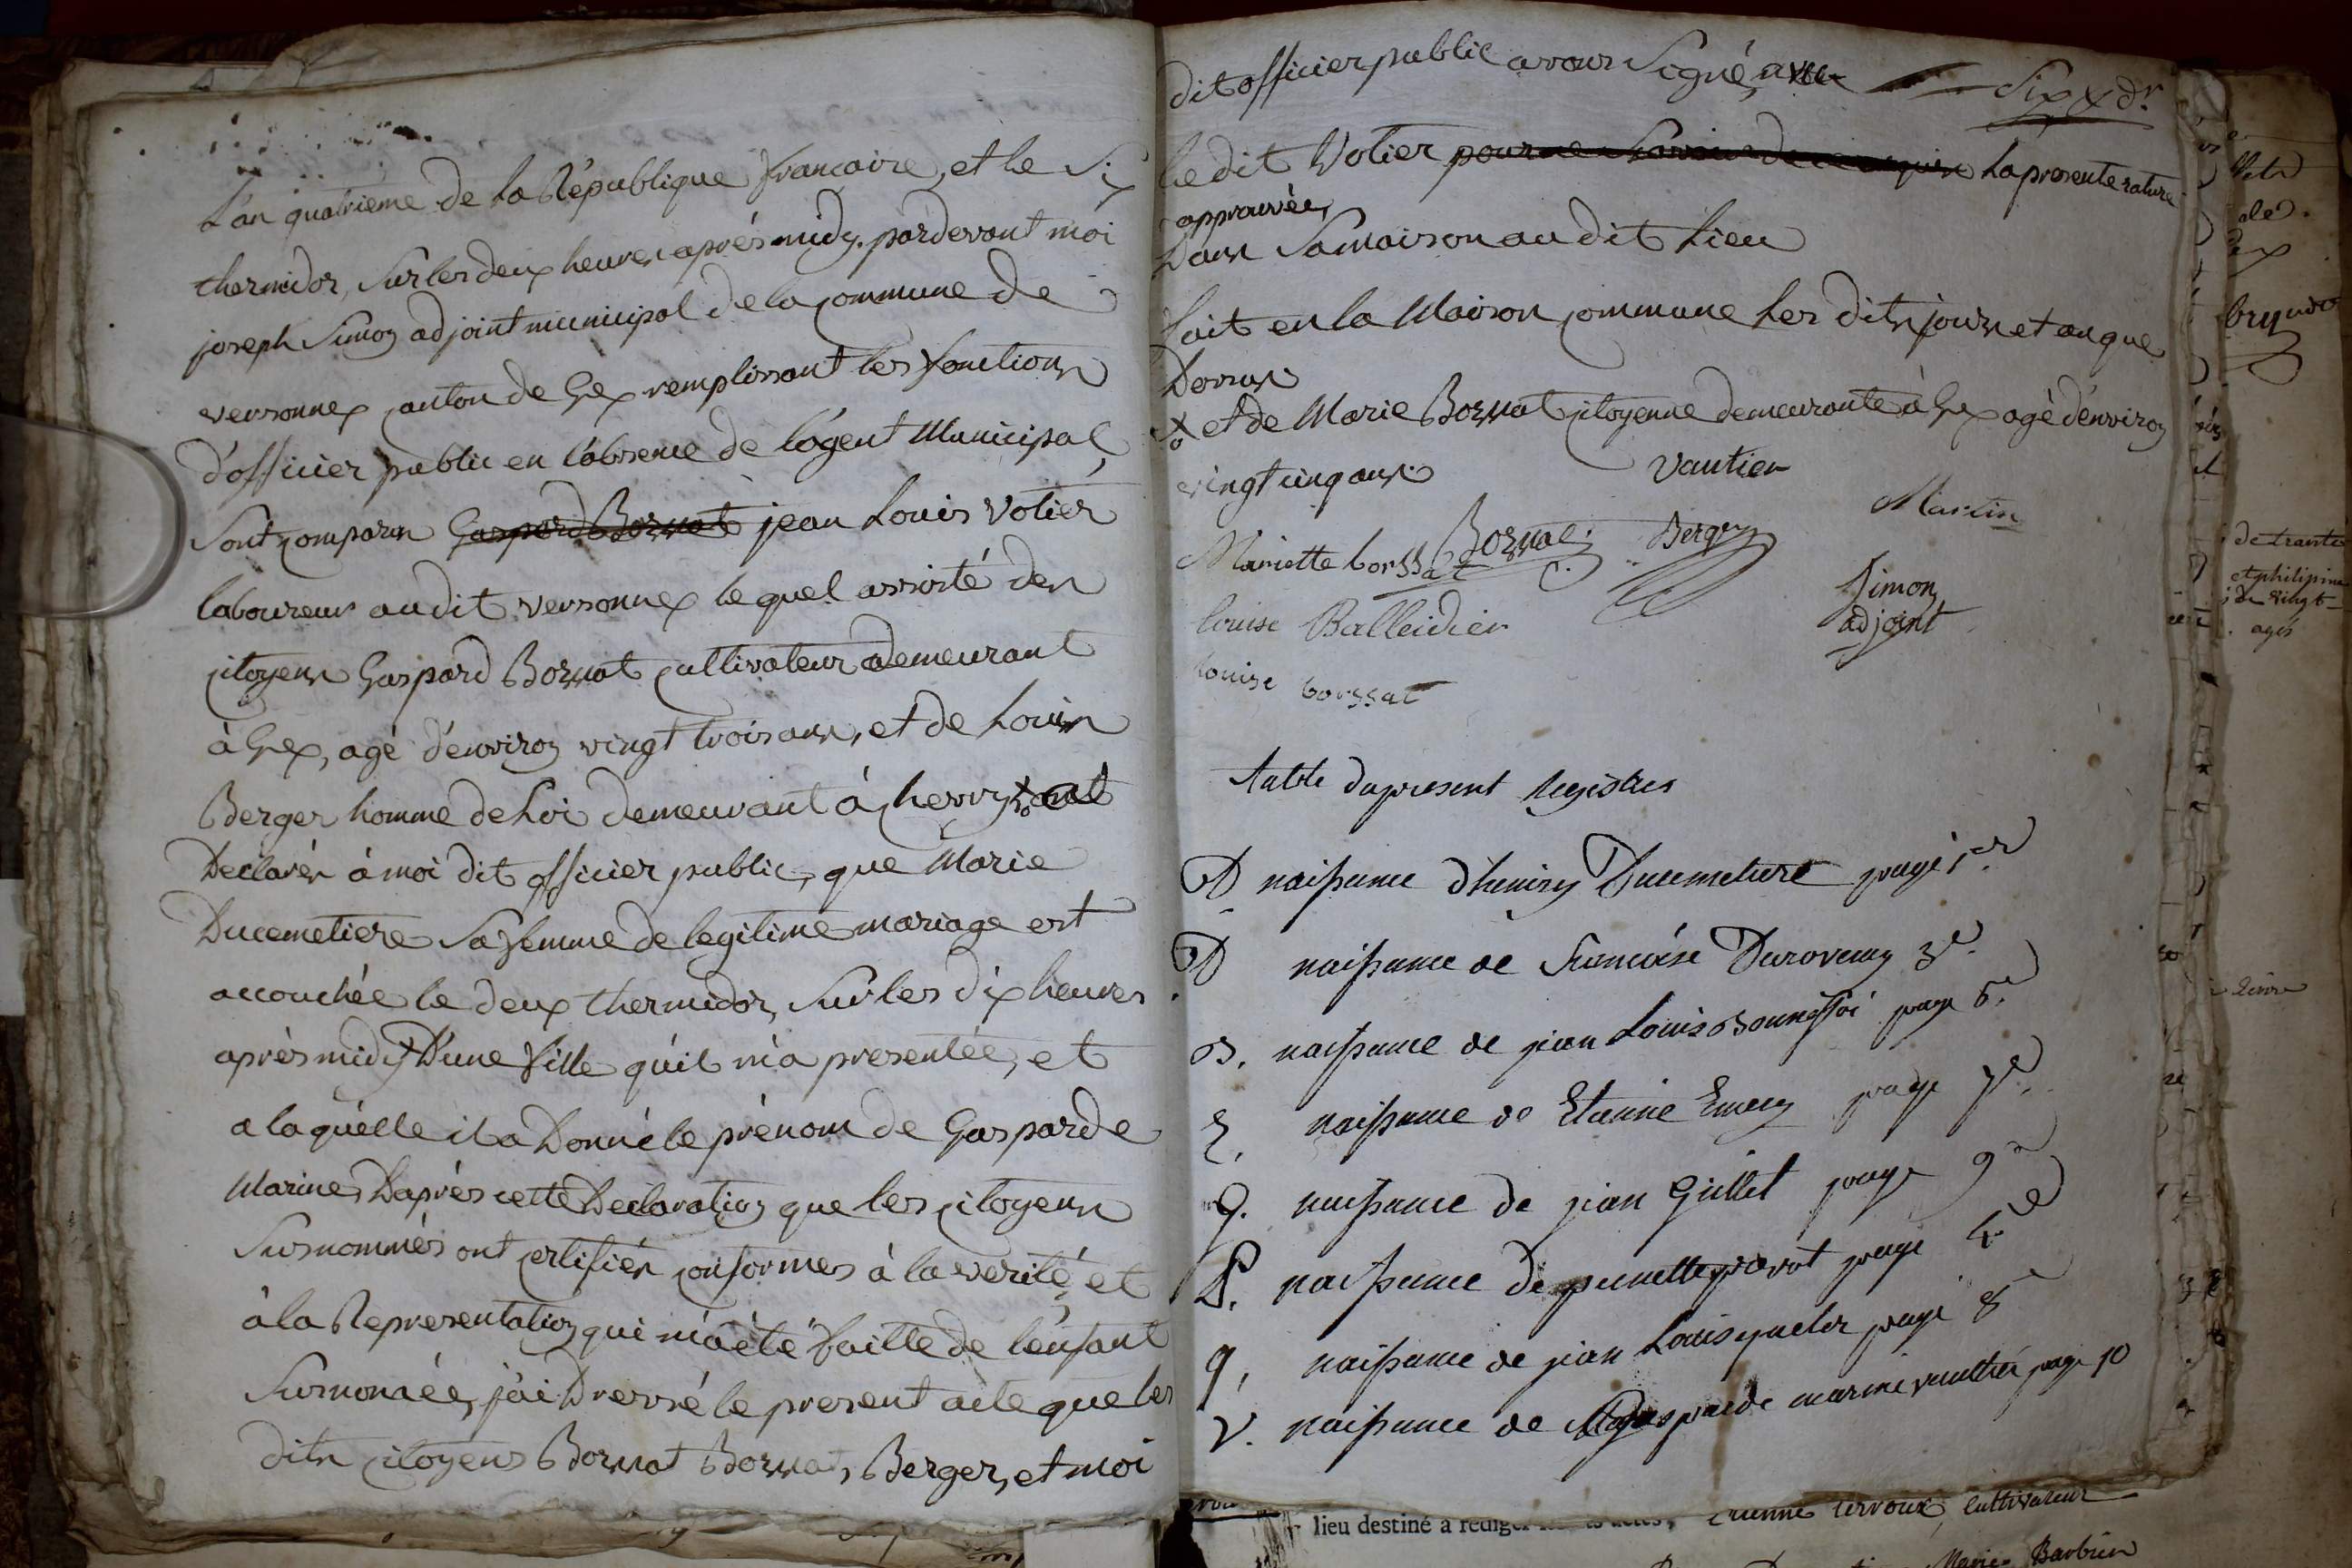 L'an quatrieme de la République francaise, et le Six
thermidor, Sur les deux heures après midy. pardevant moi
joseph Simon adjoint municipal de la commune de
versonnex canton de Gex remplissant les fonctions
d'officier public en l'absence de l'agent Municipal,
Sont comparus Gaspard Bossat jean Louis Votier
laboureur audit versonnex lequel assisté des
citoyens Gaspard Bossat cultivateur demeurant
à Gex, agé d'environ vingt trois ans, et de Louis
Berger homme de Loi demeurant à chevry ont
Declarés à moi dit officier public, que Marie
Ducemetiere Sa femme de legitime mariage est
accouchée le deux thermidor, Sur les dix heures
après midy D'une fille qu'il m'a presentée, et
a laquelle il a Donné le prénom de Gasparde
Marine, D'après cette Declaration que les citoyens
Susnommés ont certifiés conformes à la verité, et
à la Representation qui m'a été faitte de l'enfant
Susnomée, j'ai Dressé le present acte que les
dits citoyens Bossat Bossat, Berger, et moi
dit officier public avons Signé, avec
Six x dr
le dit Votier pour la presente rature
approuvée,
Dans Sa maison au dit Lieu
fait en la Maison commune Les dits jours et an que
Dessus
x et de Marie Bossat citoyenne demeurante à Gex agé d'environ
vingt cinq ans
Vautier
Martin
Mariette borssat Bossat Berger
Simon
adjoint
louise Balleidier
louise borssat
table du present Registres
D naissance d'henrry Ducemetiere page 1er
D naissance de francoise Duroveray 3e
B. naissance de jean Louis Bonneffoi page 6e
E. naissance de Etienne Emery page 7e
G. naissance de jean Gillet page 9e
P. naissance de pernette pravot page 4e
q, naissance de jean Louis page 8e
V. naissance de gasparde marine vaultier page 10
lieu destiné à rediger
cultivateur
Marie Barbier
de trante
vingt
agés